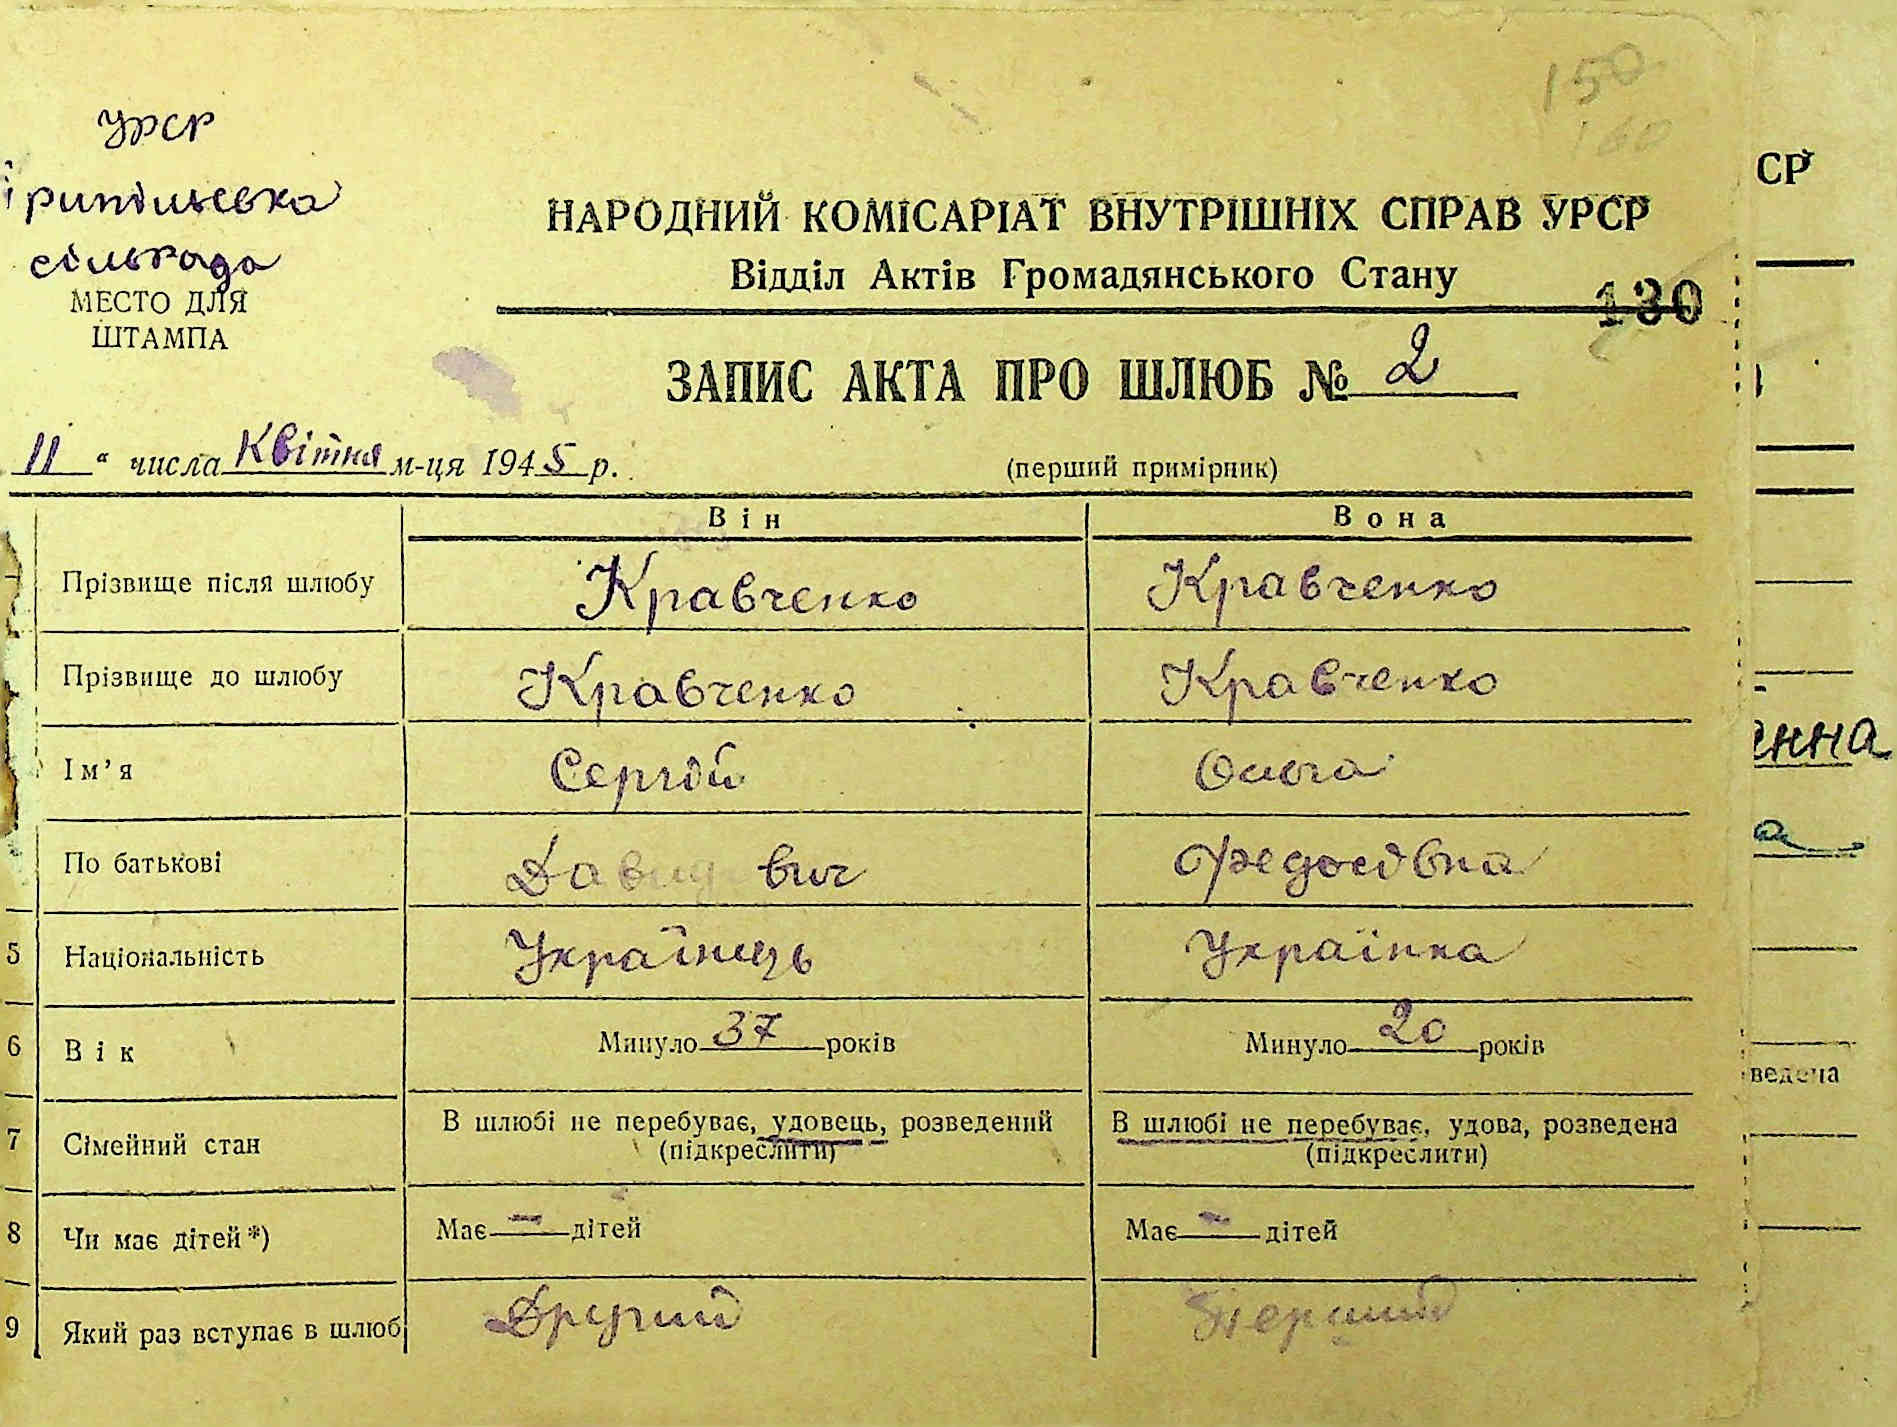 150
160
УРСР
Трипільська
сільрада
МЕСТО ДЛЯ
ШТАМПА
НАРОДНИЙ КОМІСАРІАТ ВНУТРІШНІХ СПРАВ УРСР
Відділ Актів Громадянського Стану
130
ЗАПИС АКТА ПРО ШЛЮБ № 2
11 " числа Квітня м-ця 1945 р.
(перший примірник)
Він Вона
Прізвище після шлюбу Кравченко Кравченко
Прізвище до шлюбу Кравченко Кравченко
Ім'я Сергій Ольга
По батькові Давидович Федосівна
5 Національність Українець Українка
6 Вік Минуло 37 років Минуло 20 років
7 Сімейний стан В шлюбі не перебуває, удовець, розведений В шлюбі не перебуває, удова, розведена
(підкреслити) (підкреслити)
8 Чи має дітей*) Має — дітей Має — дітей
9 Який раз вступає в шлюб Другий Перший
СР
енна
а
ведена